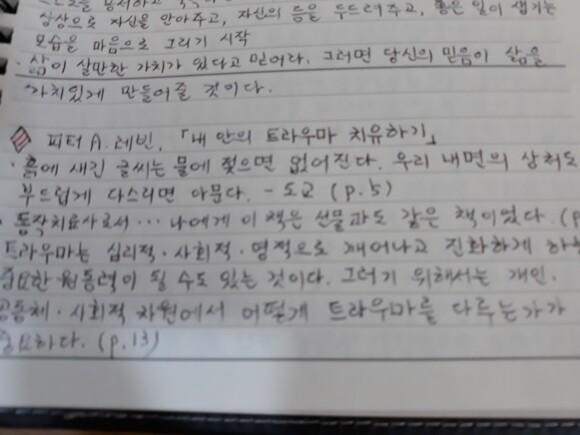 상상으로 자신을 안아주고, 자신의 등을 두드려주고, 좋은 일이 생기는
모습을 마음으로 그리기 시작
· 삶이 살만한 가치가 있다고 믿어라. 그러면 당신의 믿음이 삶을
가치있게 만들어줄 것이다.
피터 A. 레빈, 「내 안의 트라우마 치유하기」
· 흙에 새긴 글씨는 물에 젖으면 없어진다. 우리 내면의 상처도
부드럽게 다스리면 아문다. - 도교 (p.5)
· 동작치료사로서… 나에게 이 책은 선물과도 같은 책이었다. (p
트라우마는 심리적·사회적·영적으로 깨어나고 진화하게 하는
중요한 원동력이 될 수도 있는 것이다. 그러기 위해서는 개인·
공동체·사회적 차원에서 어떻게 트라우마를 다루는가가
중요하다. (p.13)